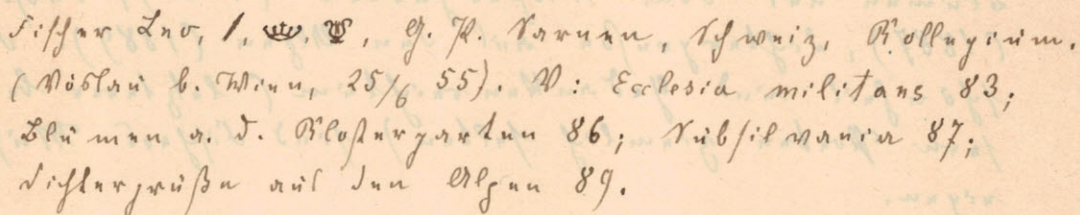 Fischer Leo, G. P. Sarnen, Schweiz, Kollegium.
(Vöslau b. Wien, 25/6 55). V: Ecclesia militans 83;
Blumen a. d. Klostergarten 86; Subsilvania 87;
Dichtergrüße aus den Alpen 89.